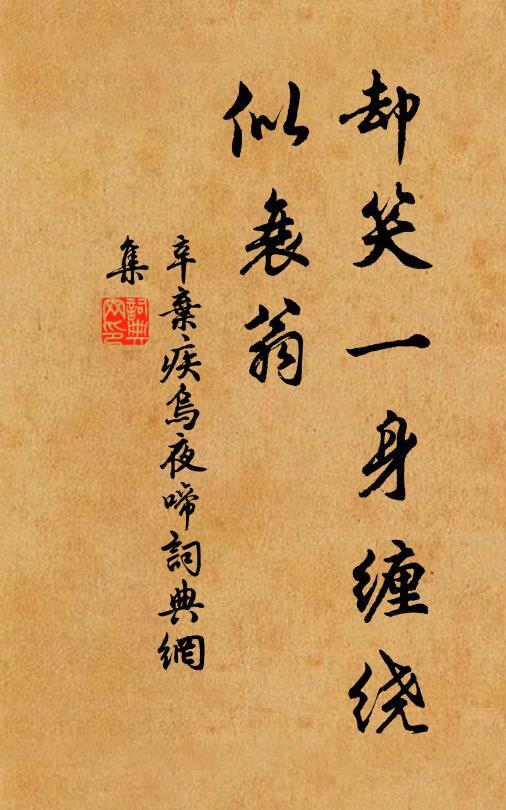 却笑一身缠绕
似衰翁
辛棄疾烏夜啼詞典網
集
詞典網印